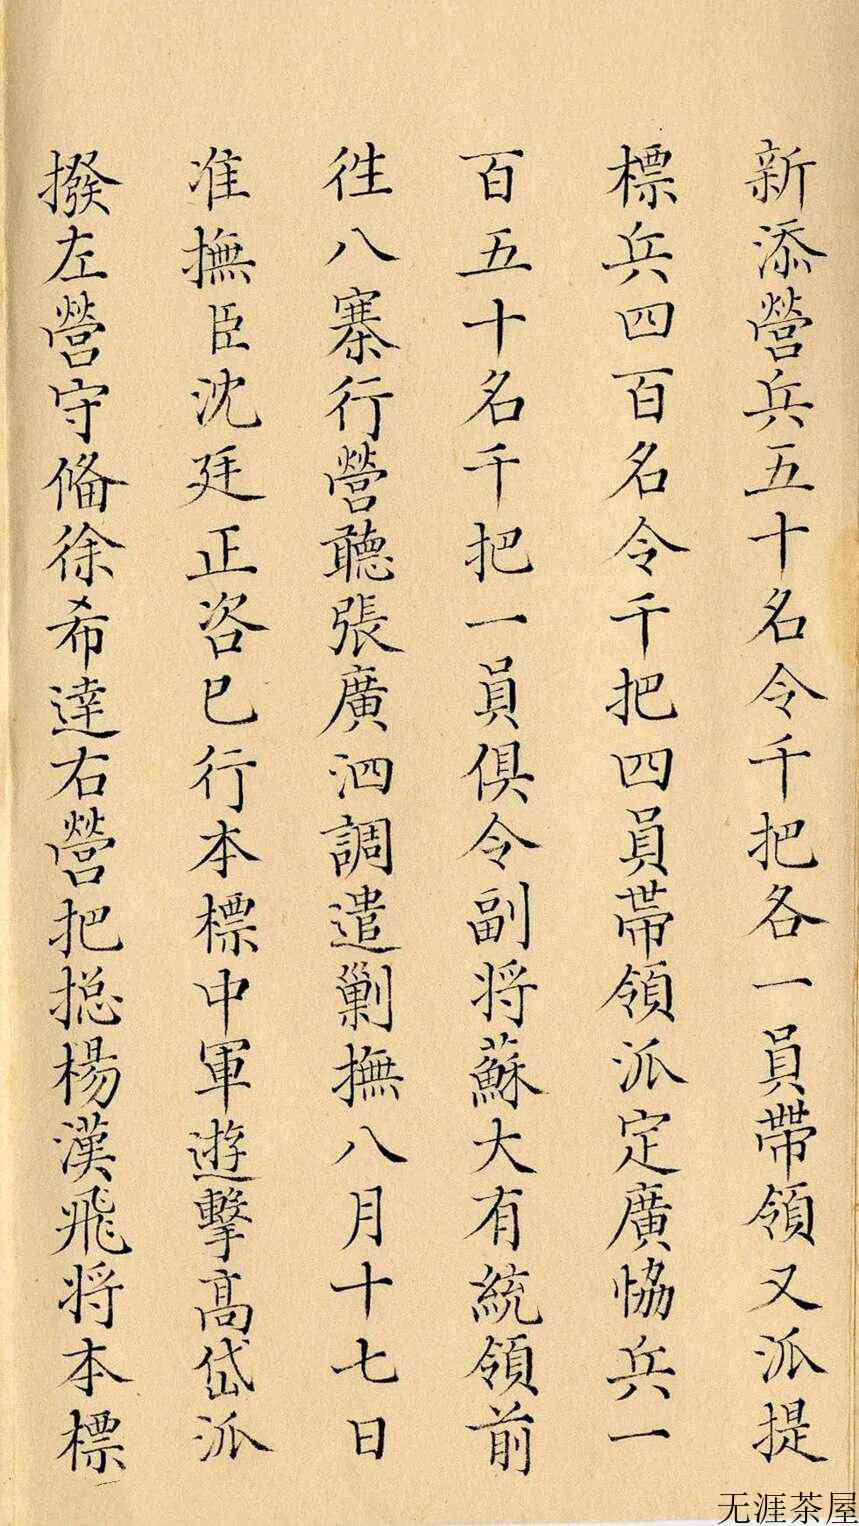 新添營兵五十名令千把各一員帶領又派提
標兵四百名令千把四員帶領派定廣恊兵一
百五十名千把一員俱令副將蘇大有統領前
徃八寨行營聽張廣泗調遣剿撫八月十七日
准撫臣沈廷正咨已行本標中軍遊擊高岱派
撥左營守俻徐希達右營把搃楊漢飛將本標
无涯茶屋